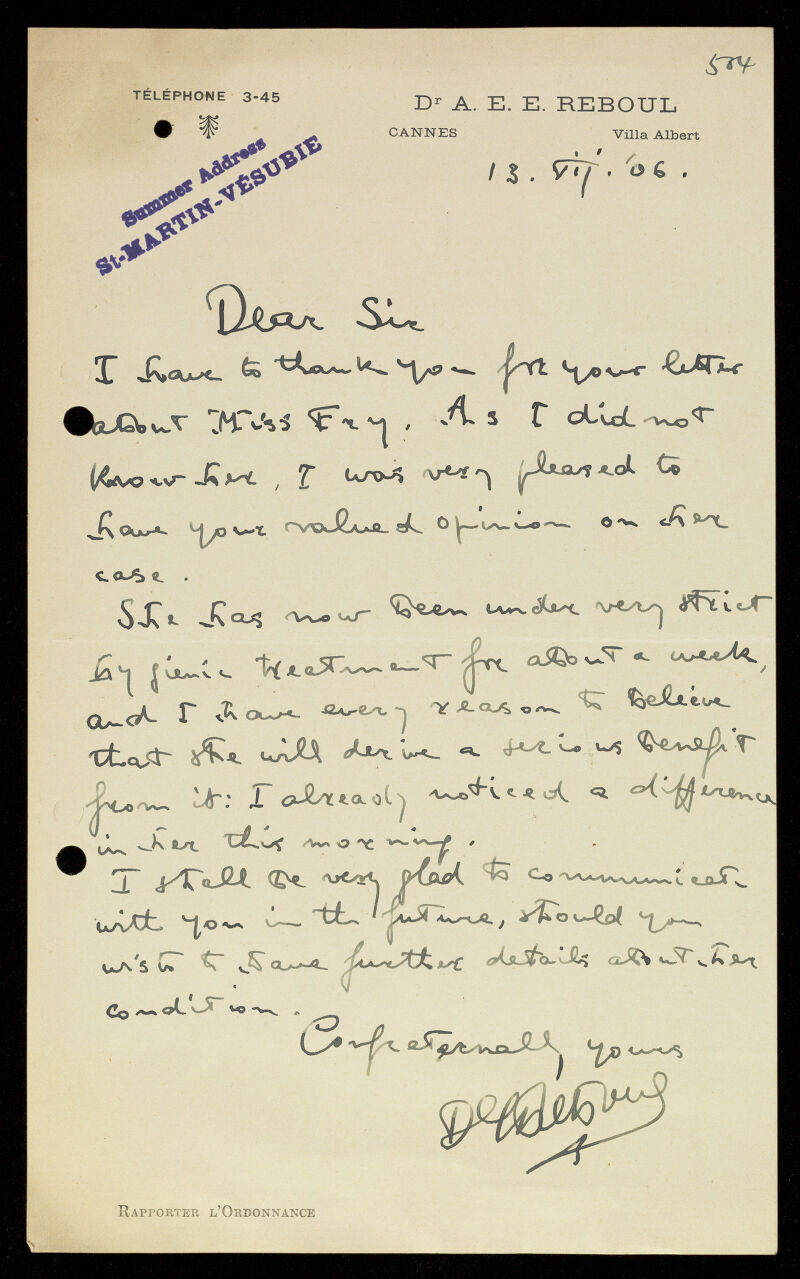 504
TÉLÉPHONE 3-45
Dr A. E. E. REBOUL
CANNES Villa Albert
Summer Address
St-MARTIN-VÉSUBIE
13. VII. '06.
Dear Sir
I have to thank you for your letter
about Miss Fry. As I did not
know her, I was very pleased to
have your valued opinion on her
case.
She has now been under very strict
hygienic treatment for about a week,
and I have every reason to believe
that she will derive a serious benefit
from it: I already noticed a difference
in her this morning.
I shall be very glad to communicate
with you in the future, should you
wish to have further details about her
condition.
Confraternally yours
Dr Reboul
RAPPORTER L'ORDONNANCE